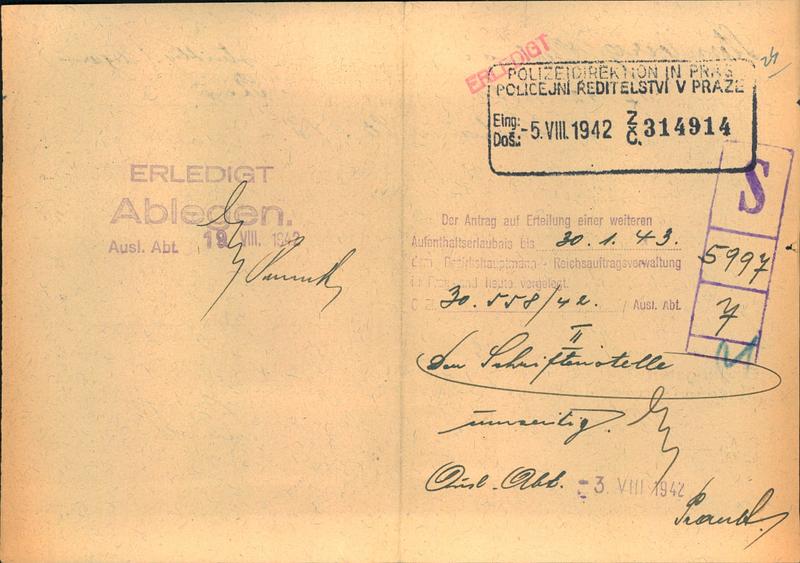 ERLEDIGT
Ablegen.
Ausl. Abt. 19. VIII. 1942
ERLEDIGT
POLIZEIDIREKTION IN PRAG
POLICEJNÍ ŘEDITELSTVÍ V PRAZE
Eing.:
Doš.: -5. VIII. 1942 Z. Č. 314914
S
5997
7
21
Der Antrag auf Erteilung einer weiteren
Aufenthaltserlaubnis bis 30. 1. 43.
dem Bezirkshauptmann - Reichsauftragsverwaltung
in Prag wird heute vorgelegt.
30.558/42. Ausl. Abt.
II
umseitig.
Ausl. Abt. - 3. VIII 1942